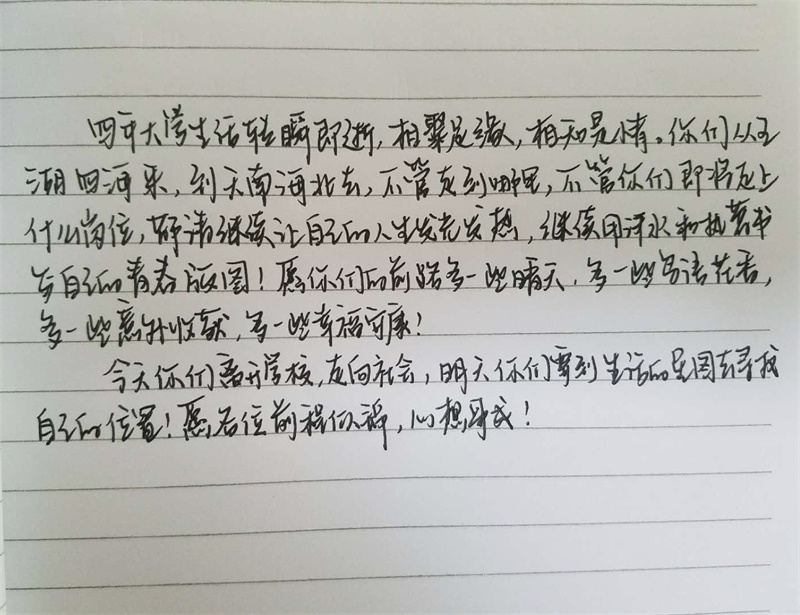 四年大学生活转瞬即逝，相聚是缘，相知是情。你们从五
湖四海来，到天南海北去，不管走到哪里，不管你们即将走上
什么岗位，都请继续让自己的人生发光发热，继续用汗水和执著书
写自己的青春版图！愿你们的前路多一些晴天，多一些鸟语花香，
多一些意外收获，多一些幸福安康！
今天你们离开学校，走向社会，明天你们要到生活的星图去寻找
自己的位置！愿各位前程似锦，心想事成！